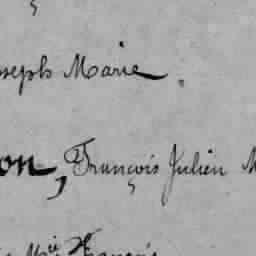 oseph Marie.
on, François Julien M
Mie François